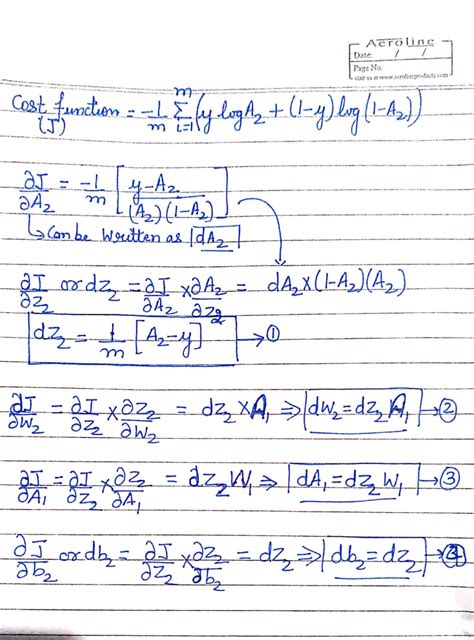 Aeroline
Date: / /
Page No:
visit us at www.aerolineproducts.com
Cost function = -1/m Σ_{i=1}^{m} (y log A₂ + (1-y) log (1-A₂))
(J)
∂J/∂A₂ = -1/m [ (y-A₂) / (A₂)(1-A₂) ]
↳ Can be written as |dA₂|
∂J/∂Z₂ or dZ₂ = ∂J/∂A₂ × ∂A₂/∂Z₂ = dA₂ × (1-A₂)(A₂)
dZ₂ = 1/m [A₂-y] → ①
∂J/∂W₂ = ∂J/∂Z₂ × ∂Z₂/∂W₂ = dZ₂ × A₁ ⇒ |dW₂ = dZ₂ A₁| → ②
∂J/∂A₁ = ∂J/∂Z₂ × ∂Z₂/∂A₁ = dZ₂ W₁ ⇒ |dA₁ = dZ₂ W₁| → ③
∂J/∂b₂ or db₂ = ∂J/∂Z₂ × ∂Z₂/∂b₂ = dZ₂ ⇒ |db₂ = dZ₂| → ④